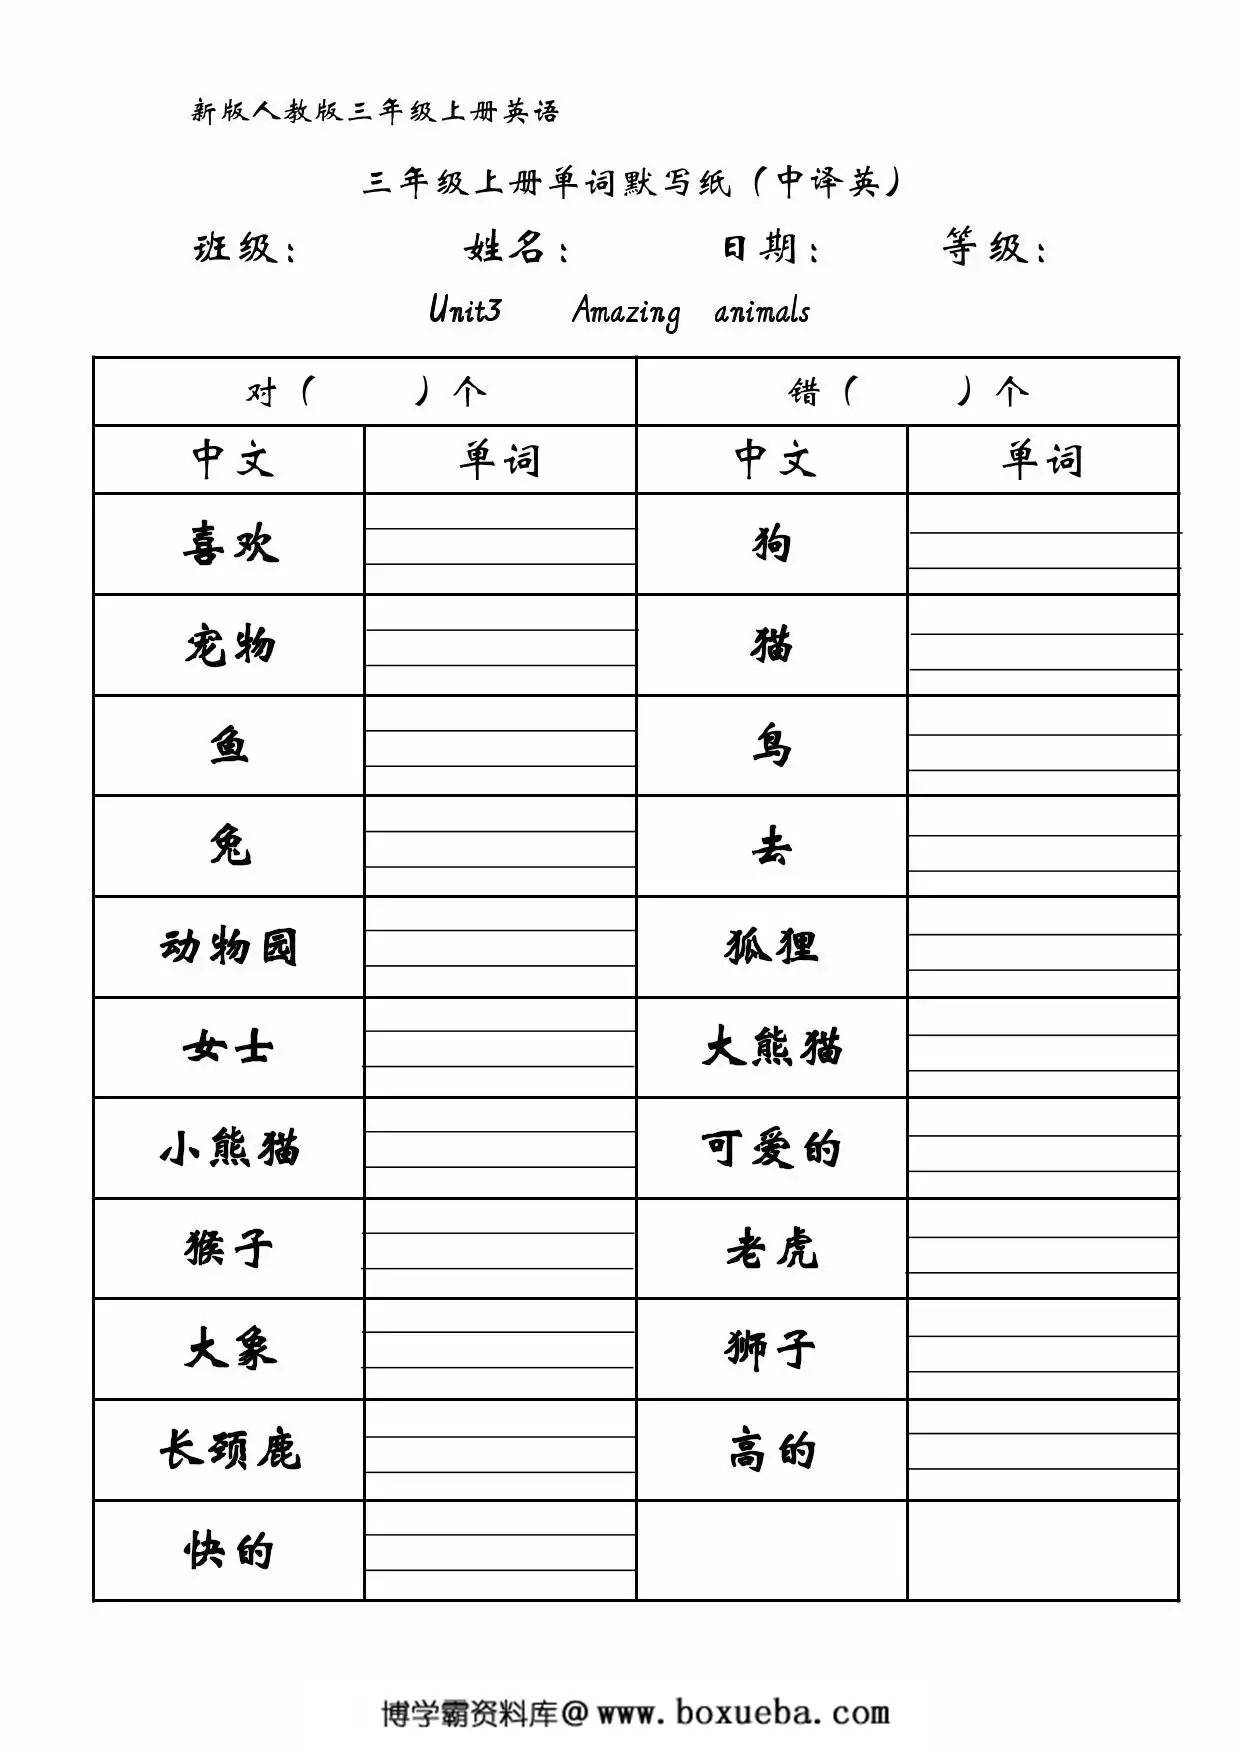 新版人教版三年级上册英语
三年级上册单词默写纸（中译英）
班级： 姓名： 日期： 等级：
Unit3 Amazing animals
对（ ）个 错（ ）个
中文 单词 中文 单词
喜欢 狗
宠物 猫
鱼 鸟
兔 去
动物园 狐狸
女士 大熊猫
小熊猫 可爱的
猴子 老虎
大象 狮子
长颈鹿 高的
快的
博学霸资料库@www.boxueba.com